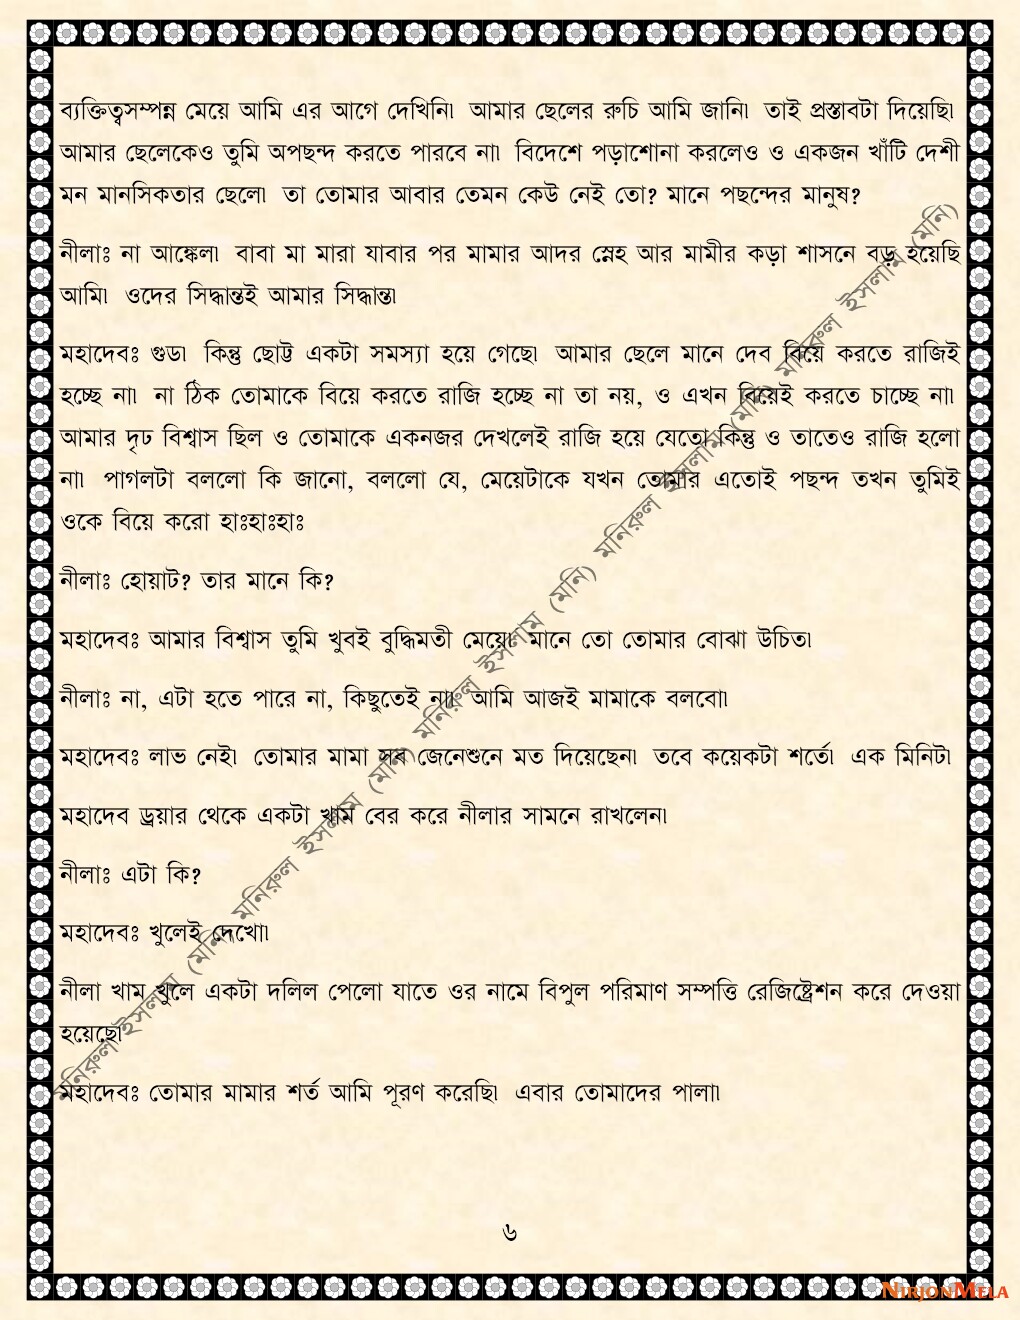 ব্যক্তিত্বসম্পন্ন মেয়ে আমি এর আগে দেখিনি৷ আমার ছেলের রুচি আমি জানি৷ তাই প্রস্তাবটা দিয়েছি৷
আমার ছেলেকেও তুমি অপছন্দ করতে পারবে না৷ বিদেশে পড়াশোনা করলেও ও একজন খাঁটি দেশী
মন মানসিকতার ছেলে৷ তা তোমার আবার তেমন কেউ নেই তো? মানে পছন্দের মানুষ?
নীলাঃ না আঙ্কেল৷ বাবা মা মারা যাবার পর মামার আদর স্নেহ আর মামীর কড়া শাসনে বড় হয়েছি
আমি৷ ওদের সিদ্ধান্তই আমার সিদ্ধান্ত৷
মহাদেবঃ গুড৷ কিন্তু ছোট্ট একটা সমস্যা হয়ে গেছে৷ আমার ছেলে মানে দেব বিয়ে করতে রাজিই
হচ্ছে না৷ না ঠিক তোমাকে বিয়ে করতে রাজি হচ্ছে না তা নয়, ও এখন বিয়েই করতে চাচ্ছে না৷
আমার দৃঢ বিশ্বাস ছিল ও তোমাকে একনজর দেখলেই রাজি হয়ে যেতো কিন্তু ও তাতেও রাজি হলো
না৷ পাগলটা বললো কি জানো, বললো যে, মেয়েটাকে যখন তোমার এতোই পছন্দ তখন তুমিই
ওকে বিয়ে করো হাঃহাঃহাঃ
নীলাঃ হোয়াট? তার মানে কি?
মহাদেবঃ আমার বিশ্বাস তুমি খুবই বুদ্ধিমতী মেয়ে৷ মানে তো তোমার বোঝা উচিত৷
নীলাঃ না, এটা হতে পারে না, কিছুতেই না৷ আমি আজই মামাকে বলবো৷
মহাদেবঃ লাভ নেই৷ তোমার মামা সব জেনেশুনে মত দিয়েছেন৷ তবে কয়েকটা শর্তে৷ এক মিনিট৷
মহাদেব ড্রয়ার থেকে একটা খাম বের করে নীলার সামনে রাখলেন৷
নীলাঃ এটা কি?
মহাদেবঃ খুলেই দেখো৷
নীলা খাম খুলে একটা দলিল পেলো যাতে ওর নামে বিপুল পরিমাণ সম্পত্তি রেজিষ্ট্রেশন করে দেওয়া
হয়েছে৷
মহাদেবঃ তোমার মামার শর্ত আমি পূরণ করেছি৷ এবার তোমাদের পালা৷
মনিরুল ইসলাম (মনি) মনিরুল ইসলাম (মনি) মনিরুল ইসলাম (মনি) মনিরুল ইসলাম (মনি) মনিরুল ইসলাম (মনি)
৬
NIRJONMELA